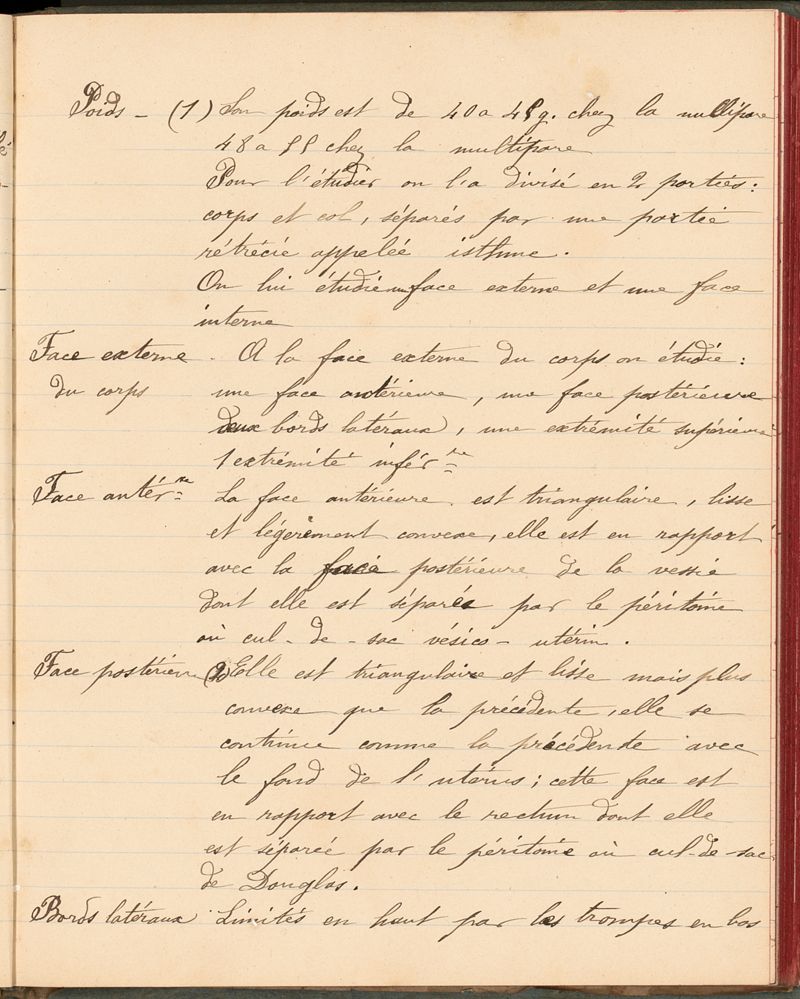 Poids - (1) Son poids est de 40 a 45 g. chez la nullipare
48 a 55 chez la multipare
Pour l'étudier on l'a divisé en 2 parties :
corps et col, séparés par une partie
rétrécie appelée isthme.
On lui étudie une face externe et une face
interne
Face externe . A la face externe du corps on étudie :
du corps une face antérieure, une face postérieure
deux bords latéraux, une extrémité supérieure
1 extrémité infér re
Face antér re La face antérieure est triangulaire, lisse
et légèrement convexe, elle est en rapport
avec la face postérieure de la vessie
dont elle est séparée par le péritoine
ou cul-de-sac vésico-utérin.
Face postérieure (2) Elle est triangulaire et lisse mais plus
convexe que la précédente, elle se
continue comme la précédente avec
le fond de l'utérus ; cette face est
en rapport avec le rectum dont elle
est séparée par le péritoine ou cul-de-sac
de Douglas.
Bords latéraux Limités en haut par les trompes en bas